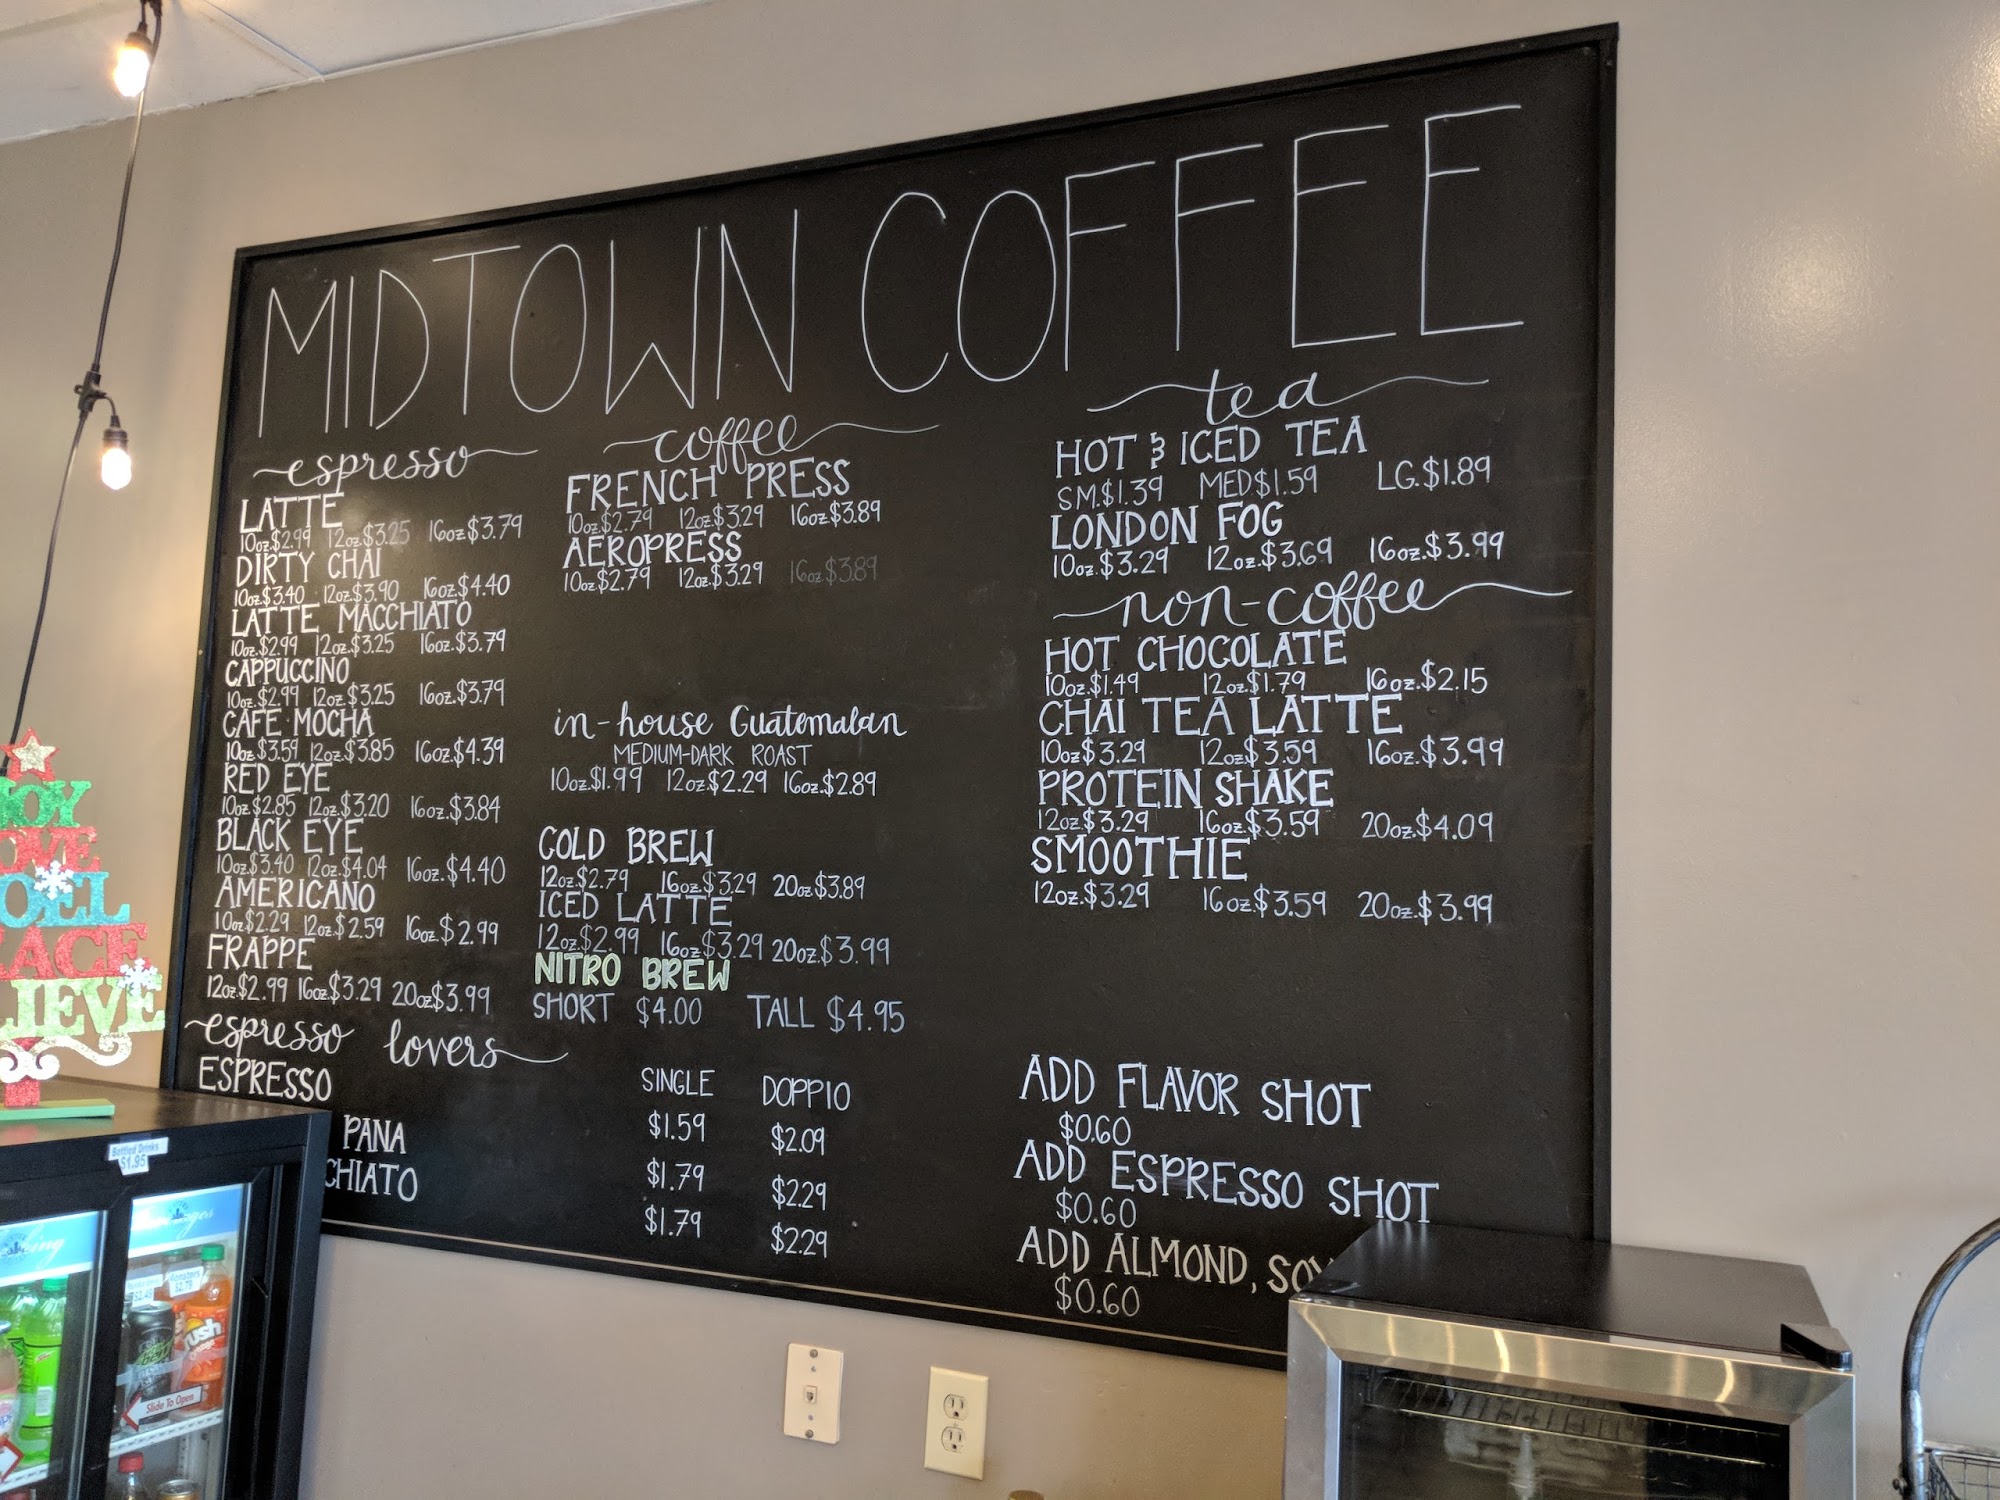 MIDTOWN COFFEE
espresso
LATTE
10oz.$2.99 12oz.$3.25 16oz.$3.79
DIRTY CHAI
10oz.$3.40 12oz.$3.90 16oz.$4.40
LATTE MACCHIATO
10oz.$2.99 12oz.$3.25 16oz.$3.79
CAPPUCCINO
10oz.$2.99 12oz.$3.25 16oz.$3.79
CAFE MOCHA
10oz.$3.59 12oz.$3.85 16oz.$4.39
RED EYE
10oz.$2.85 12oz.$3.20 16oz.$3.84
BLACK EYE
10oz.$3.40 12oz.$4.04 16oz.$4.40
AMERICANO
10oz.$2.29 12oz.$2.59 16oz.$2.99
FRAPPE
12oz.$2.99 16oz.$3.29 20oz.$3.99
espresso lovers
SINGLE DOPPIO
ESPRESSO $1.59 $2.09
PANA $1.79 $2.29
CHIATO $1.79 $2.29
coffee
FRENCH PRESS
10oz.$2.79 12oz.$3.29 16oz.$3.89
AEROPRESS
10oz.$2.79 12oz.$3.29 16oz.$3.89
in-house Guatemalan
MEDIUM-DARK ROAST
10oz.$1.99 12oz.$2.29 16oz.$2.89
COLD BREW
12oz.$2.79 16oz.$3.29 20oz.$3.89
ICED LATTE
12oz.$2.99 16oz.$3.29 20oz.$3.99
NITRO BREW
SHORT $4.00 TALL $4.95
tea
HOT & ICED TEA
SM.$1.39 MED.$1.59 LG.$1.89
LONDON FOG
10oz.$3.29 12oz.$3.69 16oz.$3.99
non-coffee
HOT CHOCOLATE
10oz.$1.49 12oz.$1.79 16oz.$2.15
CHAI TEA LATTE
10oz.$3.29 12oz.$3.59 16oz.$3.99
PROTEIN SHAKE
12oz.$3.29 16oz.$3.59 20oz.$4.09
SMOOTHIE
12oz.$3.29 16oz.$3.59 20oz.$3.99
ADD FLAVOR SHOT
$0.60
ADD ESPRESSO SHOT
$0.60
ADD ALMOND, SOY
$0.60
JOY
LOVE
NOEL
PEACE
LIEVE
Bottled Drinks
$1.95
Monsters
$2.79
Crush
Slide To Open